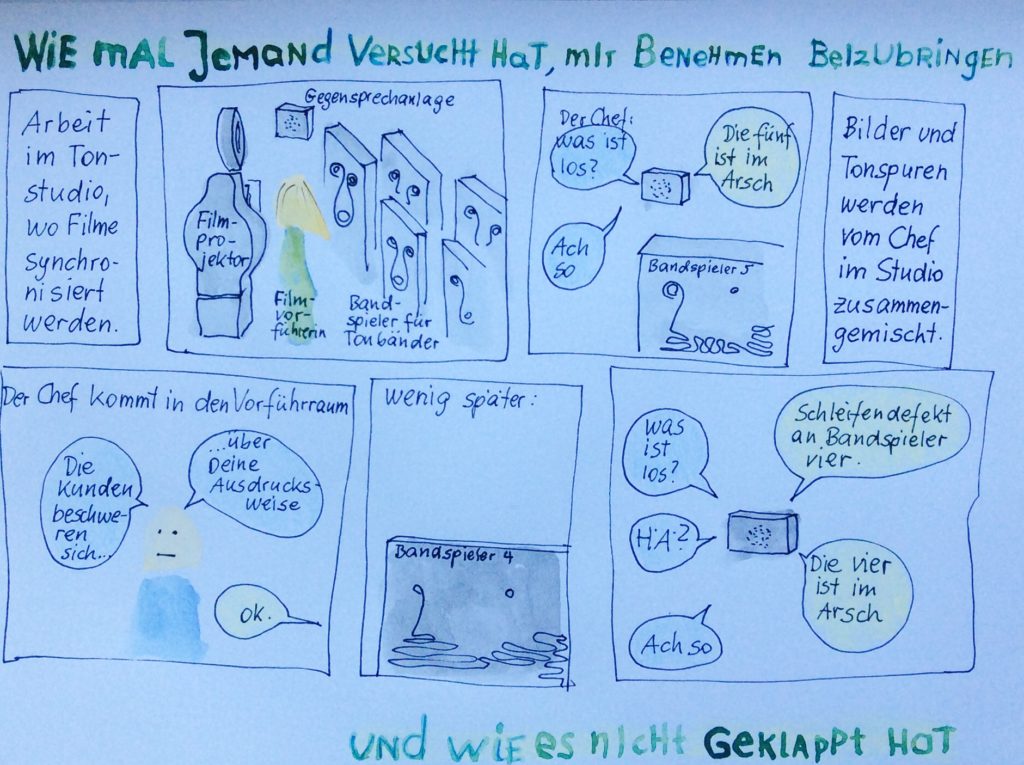 WIE MAL JEMAND VERSUCHT HAT, MIR BENEHMEN BEIZUBRINGEN
Arbeit
im Ton-
studio,
wo Filme
synchro-
nisiert
werden.
Gegensprechanlage
Film-
pro-
jektor
Film-
vor-
führerin
Band-
spieler für
Tonbänder
Der Chef:
was ist
los?
Die fünf
ist im
Arsch
Ach
so
Bandspieler 5
Bilder und
Tonspuren
werden
vom Chef
im Studio
zusammen-
gemischt.
Der Chef kommt in den Vorführraum
Die
Kunden
beschwe-
ren
sich...
...über
Deine
Ausdrucks-
weise
OK.
wenig später:
Bandspieler 4
was
ist
los?
Schleifendefekt
an Bandspieler
vier.
HÄ?
Die vier
ist im
Arsch
Ach so
UND WIE es nicht GEKLAPPT HAT